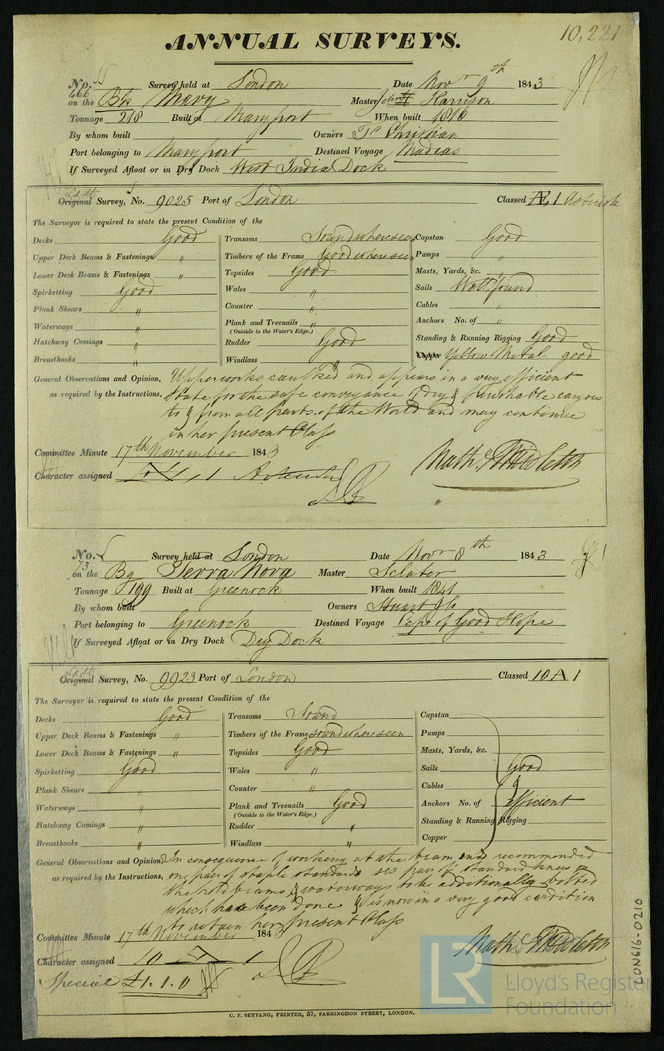 10,221
ANNUAL SURVEYS.
No. 55 Survey held at London Date Novr 9th 1843
466
on the Bk Mary Master Harrison
Tonnage 218 Built at Maryport When built
By whom built Owners Christian
Port belonging to Maryport Destined Voyage Madras
If Surveyed Afloat or in Dry Dock West India Dock
Last
Original Survey, No. 9025 Port of London Classed Æ 1 Asterisk
The Surveyor is required to state the present Condition of the
Decks Good Transoms Sound where seen Capstan Good
Upper Deck Beams & Fastenings " Timbers of the Frame Good where seen Pumps "
Lower Deck Beams & Fastenings " Topsides Good Masts, Yards, &c. "
Spirketting Good Wales " Sails Well found
Plank Shears " Counter " Cables "
Waterways " Plank and Treenails " Anchors No. of "
(Outside to the Water's Edge.)
Hatchway Comings " Rudder Good Standing & Running Rigging Good
Breasthooks " Windlass " Yellow Metal good
General Observations and Opinion, Upperworks caulked and appears in a very efficient
as required by the Instructions, State for the safe conveyance of dry & perishable cargoes
to & from all parts of the World and may continue
in her present Class
Committee Minute 17th November 1843
Character assigned Æ 1
Nath. Middleton
No. Survey held at London Date Novr 8th 1843
73
on the Bg Terra Nova Master Sclater
Tonnage 199 Built at Greenock When built 1841
By whom built Owners Stuart & Co
Port belonging to Greenock Destined Voyage Cape of Good Hope
If Surveyed Afloat or in Dry Dock Dry Dock
Last
Original Survey, No. 9923 Port of London Classed 10 A 1
The Surveyor is required to state the present Condition of the
Decks Good Transoms Sound Capstan
Upper Deck Beams & Fastenings " Timbers of the Frame sound where seen Pumps
Lower Deck Beams & Fastenings " Topsides Good Masts, Yards, &c.
Spirketting Good Wales " Sails Good
Plank Shears " Counter " Cables &
Waterways " Plank and Treenails Good Anchors No. of efficient
(Outside to the Water's Edge.)
Hatchway Comings " Rudder " Standing & Running Rigging
Breasthooks " Windlass " Copper
General Observations and Opinion, In consequence of working at the beam ends recommended
as required by the Instructions, one pair of staple standards pair of standard knees in
the hold beams & waterways to be additionally bolted
which has been done & is now in a very good condition
to retain her present Class
Committee Minute 17th November 1843
Character assigned 10 A 1
Nath. Middleton
Special £1.1.0
LR Lloyd's Register
Foundation
LON616-0210
C. F. SEYFANG, PRINTER, 57, FARRINGDON STREET, LONDON.